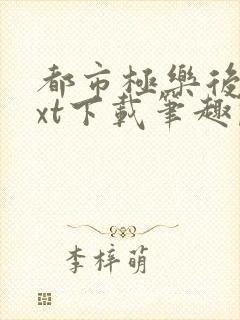 都市極樂後
xt下載筆趣
李梓萌